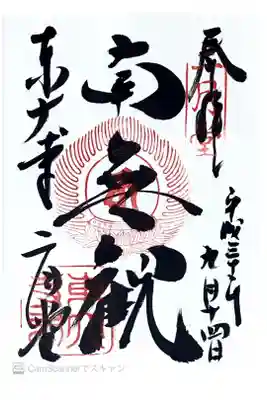 奉拝
平成三十年
九月十四日
南無観
東大寺
二月堂
CamScannerでスキャン